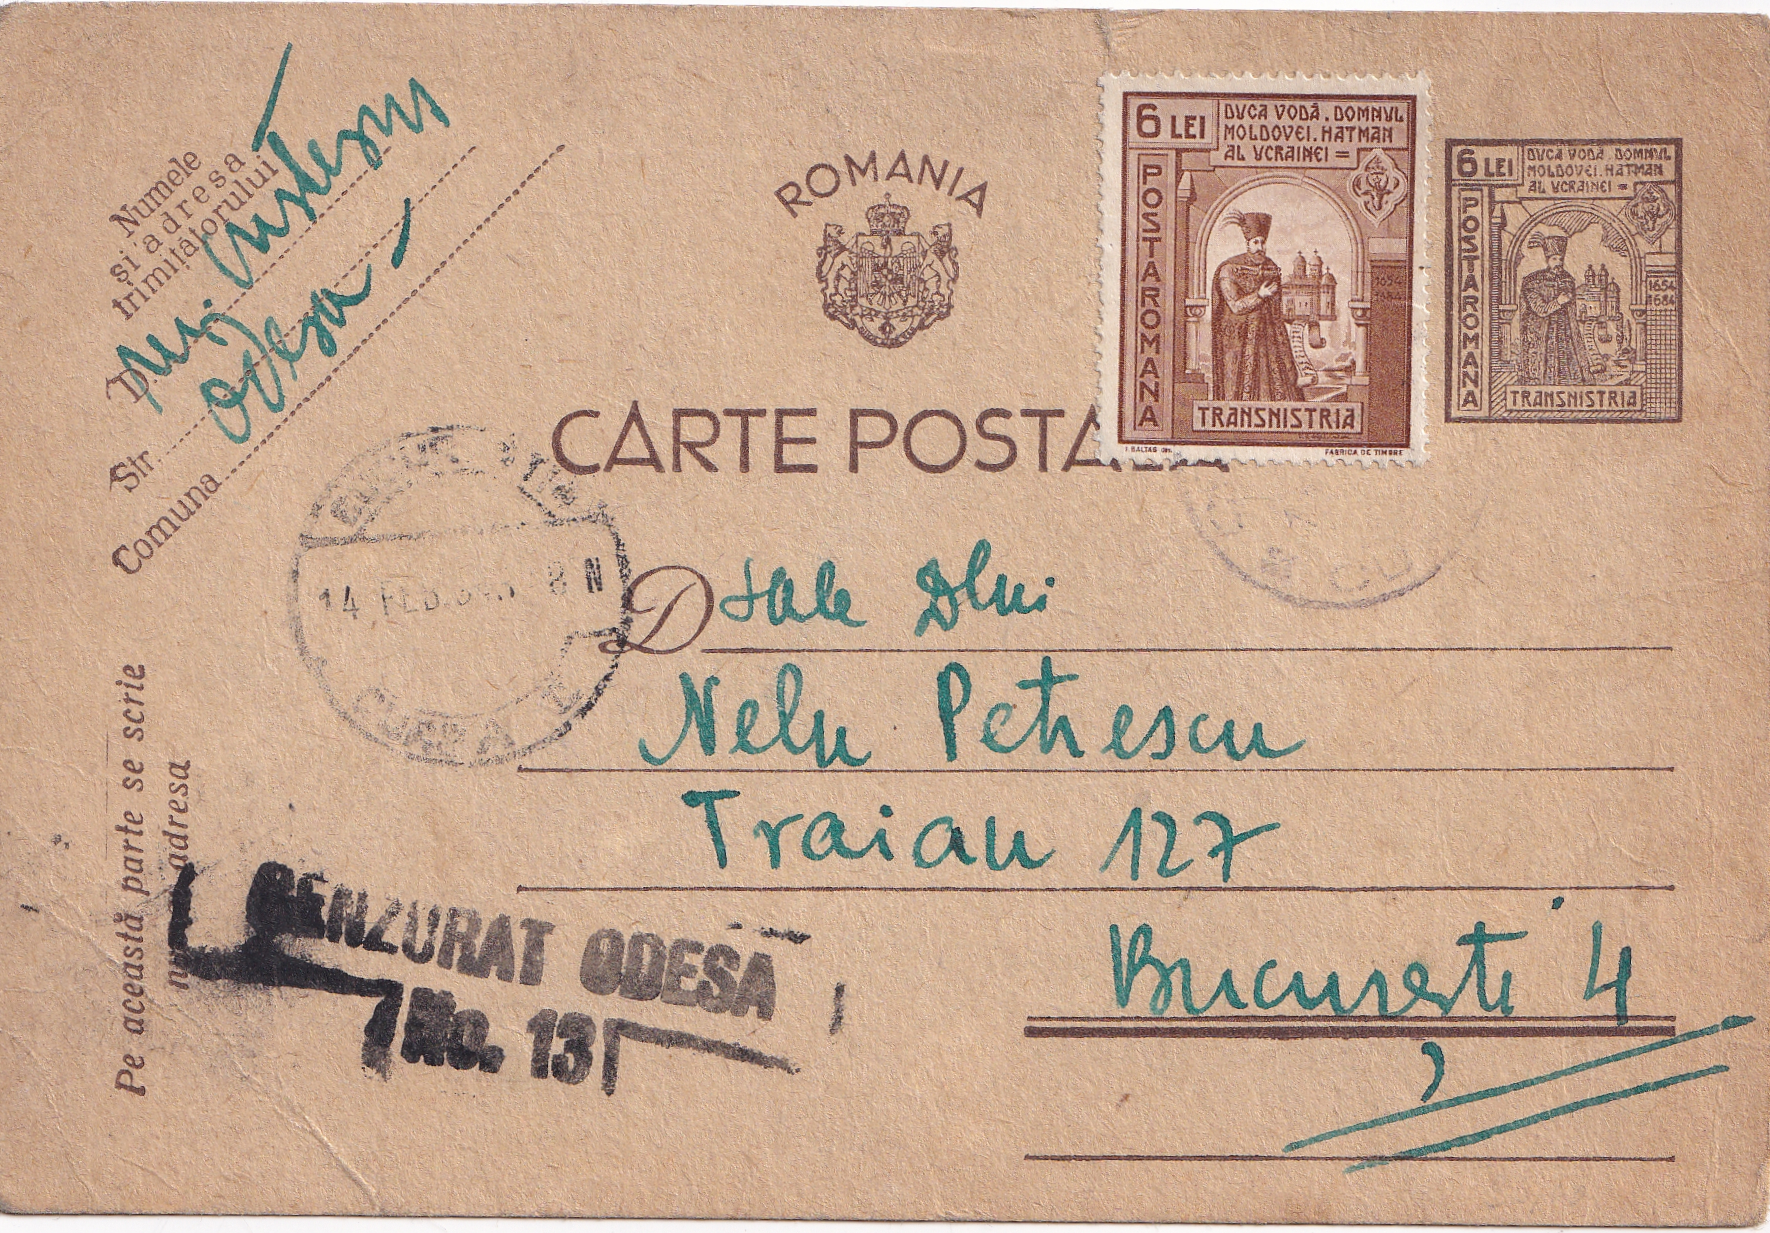 Numele
și adresa
trimițătorului
D
Odesa
Str.
Comuna
ROMANIA
CARTE POSTA
6 LEI
DVCA VODĂ . DOMNVL
MOLDOVEI . HATMAN
AL VCRAINEI =
POSTA ROMANA
1654
1684
TRANSNISTRIA
I. BALTAG
FABRICA DE TIMBRE
6 LEI
DVCA VODĂ . DOMNVL
MOLDOVEI . HATMAN
AL VCRAINEI =
POSTA ROMANA
1654
1684
TRANSNISTRIA
14 FEB. 8 N
D sale Dlui
Nelu Petrescu
Traian 127
București 4
Pe această parte se scrie
adresa
CENZURAT ODESA
No. 13